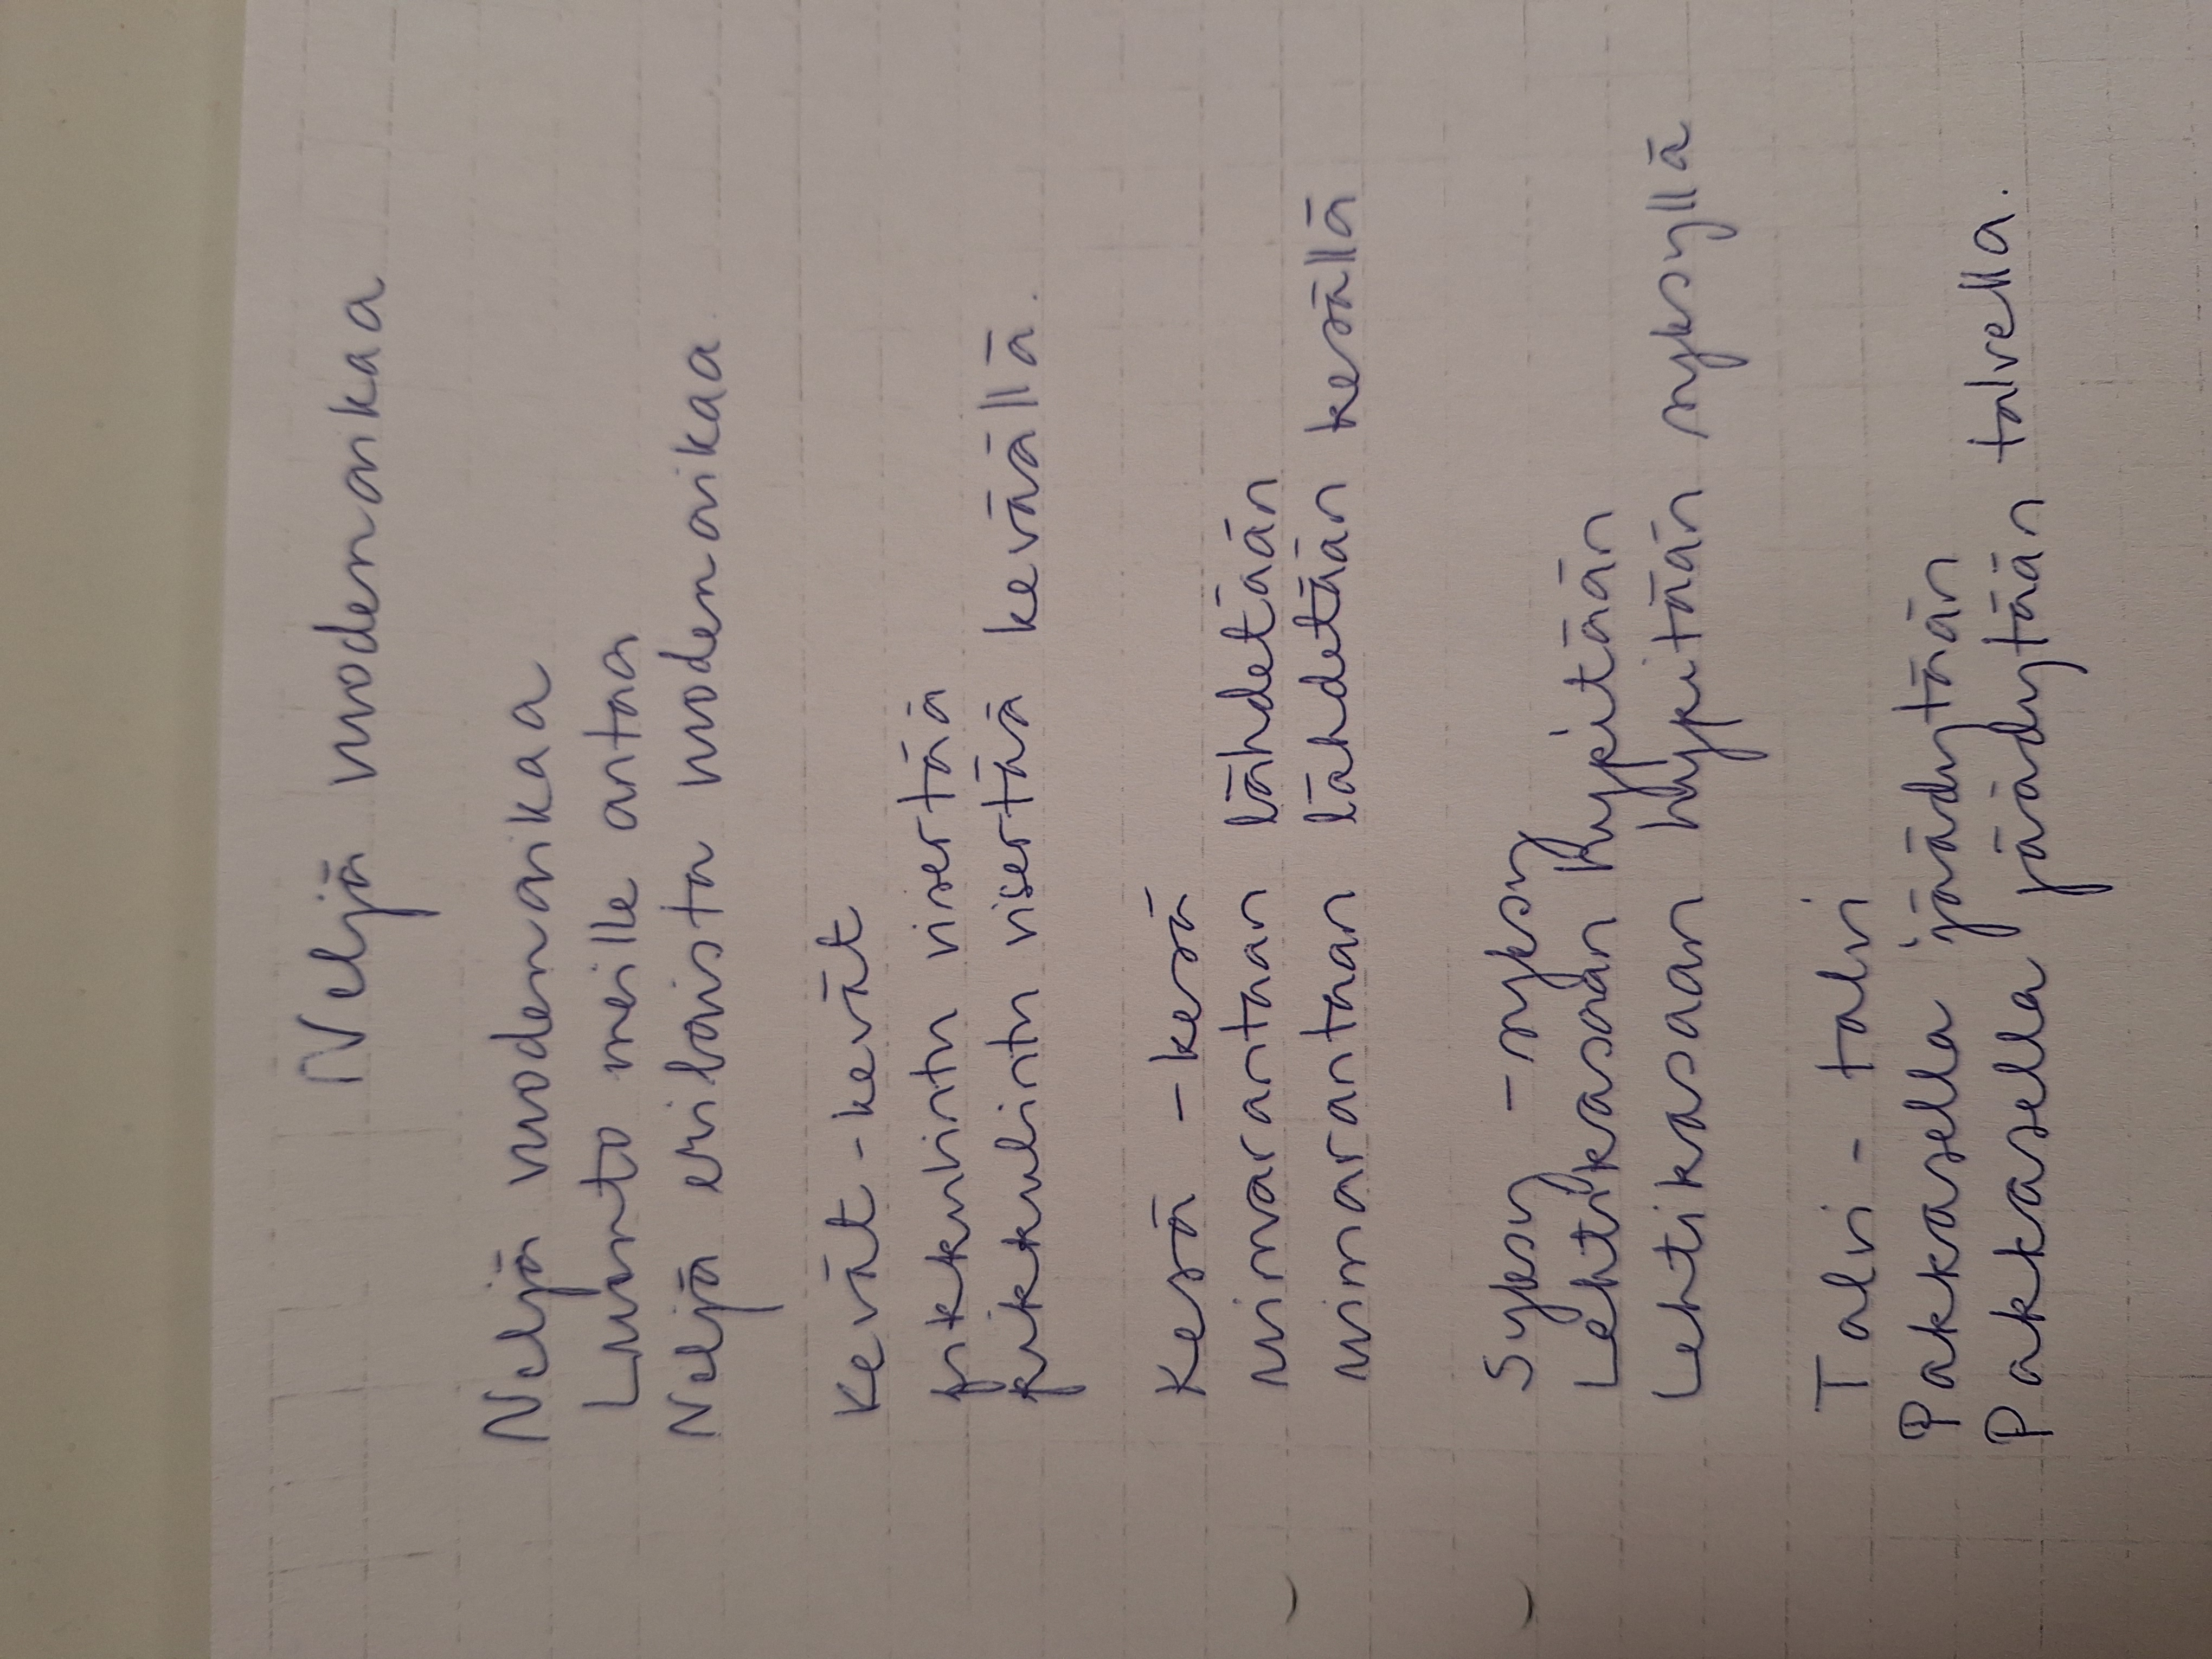 Neljä vuodenaikaa
Neljä vuodenaikaa
Luonto meille antaa
Neljä erilaista vuodenaikaa
Kevät - kevät
pikkulintu visertää
pikkulintu visertää keväällä.
Kesä - kesä
uimarantaan lähdetään
uimarantaan lähdetään kesällä
Syksy - syksy
Lehtikasaan hypitään
Lehtikasaan hypitään syksyllä
Talvi - talvi
Pakkasella jäädytään
Pakkasella jäädytään talvella.